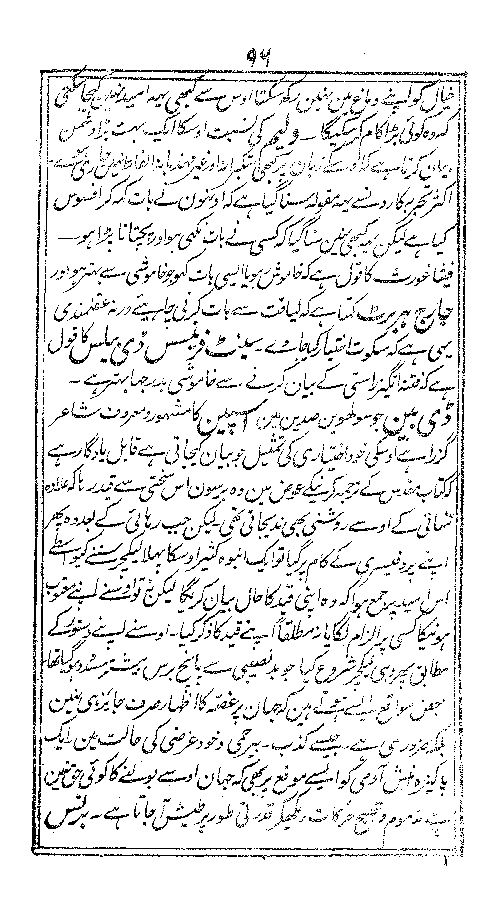 ۹۶
خیال کو اپنے دماغ مین نہین رکھ سکتا اوس سے کبھی یہہ امید نہین کیجا سکتی
کہ وہ کوئی بڑا کام کر سکیگا۔ ولیم کی نسبت اوسکا ایک بہت بڑا دشمن
بیان کرتا ہے کہ اوسکے زبان پر کبھی متکبرانہ اور غیر مہذبانہ الفاظ نہین جاری ہوے
اکثر تجربہ کارونسے یہہ مقولہ سنا گیا ہے کہ اونہون نے بات کہہ کر افسوس
کیا ہے لیکن یہ کبھی نہین سنا گیا کہ کسی نے بات نکہی ہو اور پچتانا پڑا ہو۔
فیثاغورث کا قول ہے کہ خاموش ہو یا ایسی بات کہو جو خاموشی سے بہتر ہو اور
جارج ہربرٹ کہتا ہے کہ لیاقت سے بات کرنی چاہئے ورنہ عقلمندی
یہی ہے کہ سکوت اختیار کیا جاوے۔ سینٹ فرینسس ڈی سیلس کا قول
ہے کہ فتنہ انگیز راستی کے بیان کرنے سے خاموشی بدرجہا بہتر ہے۔
ڈی لین جو سولھوین صدین مین اسپین کا مشہور و معروف شاعر
گزرا ہے اوسکی خود اختیاری کی تمثیل جو بیان کیجاتی ہے قابل یادگار ہے
کتاب مقدس کے ترجمہ کرنیکے عوض مین وہ برسون اس سختی سے قید رہا کہ علاوہ
تنہائی کے اوسے روشنی بھی ندیجاتی تھی لیکن جب رہائی کے بعد وہ پھر
اپنے پروفیسری کے کام پر گیا تو ایک انبوہ کثیر اوسکا پہلا لیکچر سننے کیواسطے
اس امید پر جمع ہوا کہ وہ اپنی قید کا حال بیان کریگا لیکن نہ تو اوسنے اپنے معتوب
ہونیکا کسی پر الزام لگایا نہ مطلقاً اپنے قید کا ذکر کیا۔ اوسنے اپنے دستور کے
مطابق پھر وہی لیکچر شروع کیا جو بدنصیبی سے پانچ برس پیشتر بند ہو گیا تھا
بعض مواقع ایسے ہوتے ہین کہ جہان پر غصہ کا اظہار صرف جائز ہی نہین
بلکہ ضروری ہے۔ جیسے کذب۔ بیرحمی و خود غرضی کی حالت مین ایک
پاکیزہ منش آدمی کو ایسے موقع پر بھی کہ جہان اوسے بولنے کا کوئی حق نہین
ہے مذموم و قبیح حرکات دیکھکر قدرتی طور پر طیش آ جاتا ہے۔ پرتس